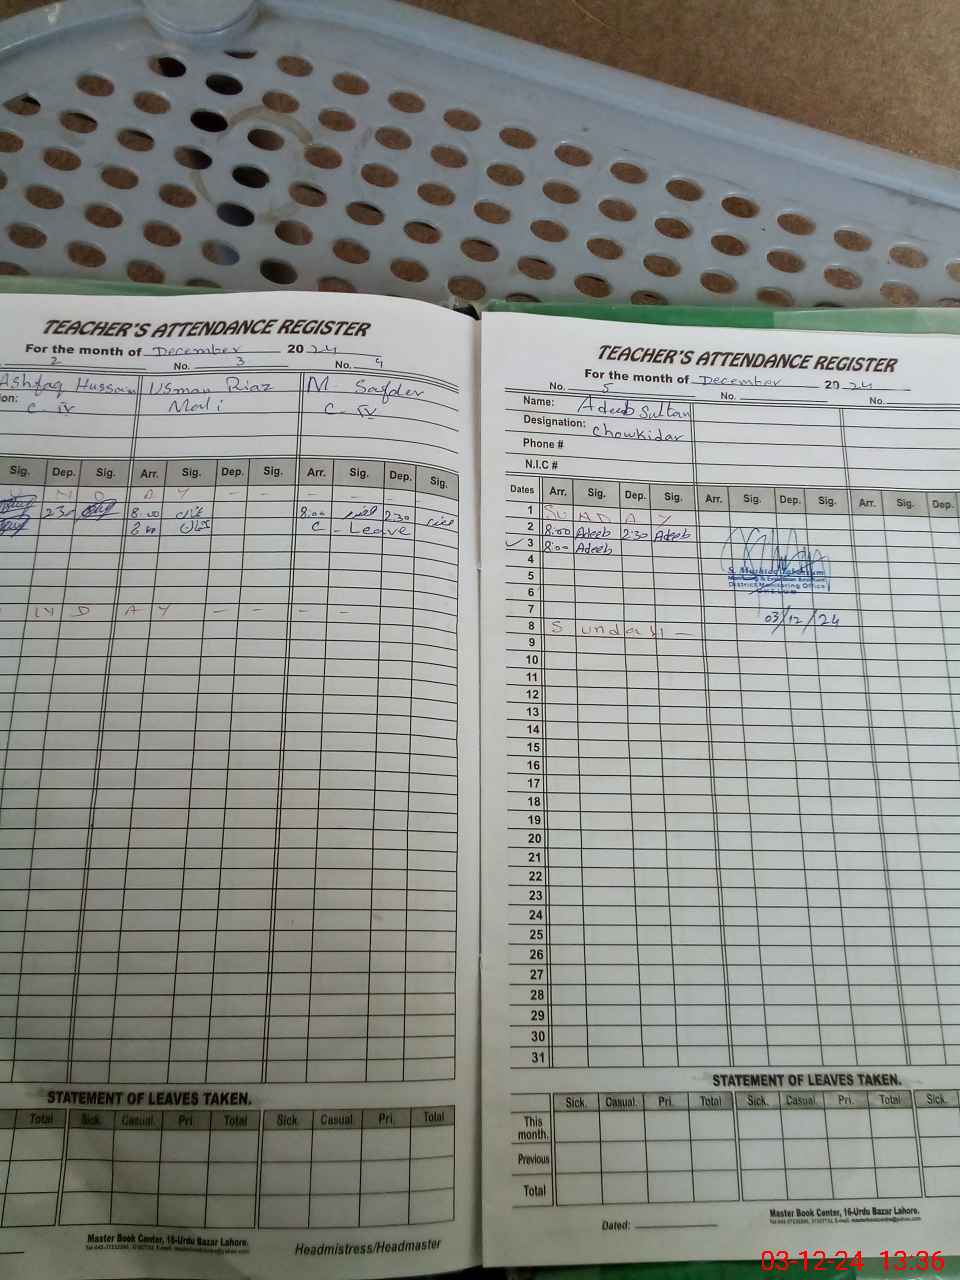 TEACHER'S ATTENDANCE REGISTER
For the month of December 2024
2 No. 3 No. 4
Ashfaq Hussain Usman Riaz M. Safder
ion: C-IV Mali C-IV
Sig. Dep. Sig. Arr. Sig. Dep. Sig. Arr. Sig. Dep. Sig.
N D A Y - - - - - -
2:30 8:00 8:00 2:30
C - Leave
N D A Y - - - -
STATEMENT OF LEAVES TAKEN.
Total Sick. Casual. Pri. Total Sick. Casual. Pri. Total
Master Book Center, 16-Urdu Bazar Lahore.
Headmistress/Headmaster
TEACHER'S ATTENDANCE REGISTER
For the month of December 2024
No. 5 No. No.
Name: Adeeb Sultan
Designation: Chowkidar
Phone #
N.I.C #
Dates Arr. Sig. Dep. Sig. Arr. Sig. Dep. Sig. Arr. Sig. Dep.
1 SUNDAY
2 8:00 Adeeb 2:30 Adeeb
3 8:00 Adeeb
4
5
District Monitoring Office
6
7
03/12/24
8 Sunday -
9
10
11
12
13
14
15
16
17
18
19
20
21
22
23
24
25
26
27
28
29
30
31
STATEMENT OF LEAVES TAKEN.
Sick. Casual. Pri. Total Sick. Casual. Pri. Total Sick.
This month.
Previous
Total
Master Book Center, 16-Urdu Bazar Lahore.
Dated:
03-12-24 13:36